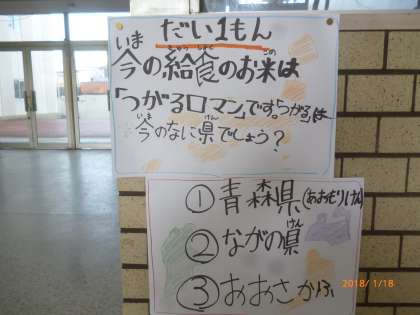 だい1もん
今の給食のお米は
「つがるロマン」です。「つがる」は
今のなに県でしょう?
①青森県(あおもりけん)
②ながの県
③おおさかふ
2018/1/18